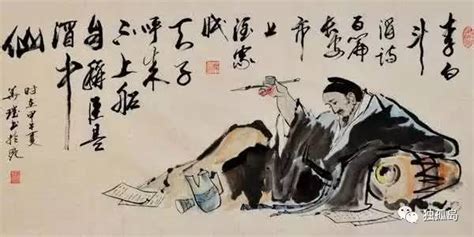 李白
斗
酒诗
百篇
长安
市
上
酒家
眠
天子
呼来
不上船
自称臣是
酒中
仙
时在甲午夏
独孤岛